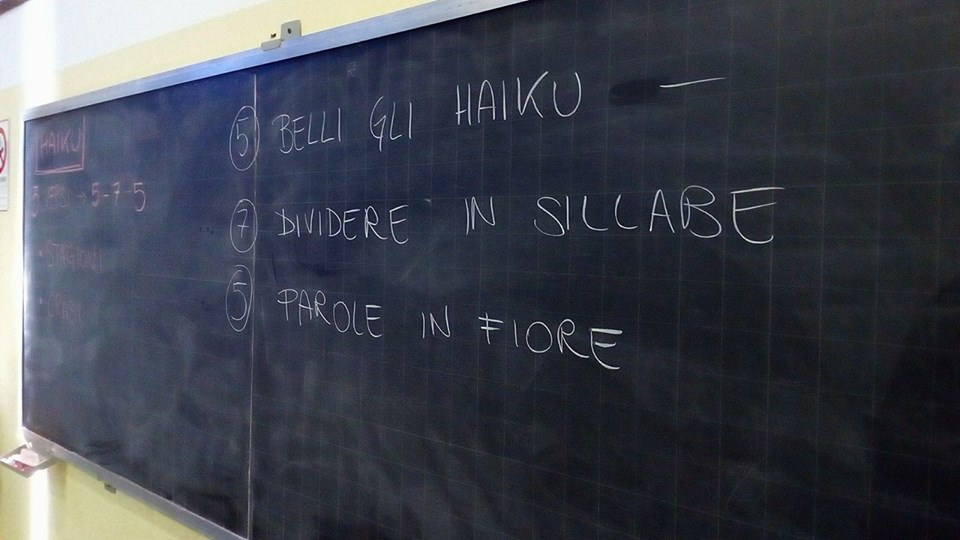 HAIKU
5-7-5
STAGIONI
5 BELLI GLI HAIKU —
7 DIVIDERE IN SILLABE
5 PAROLE IN FIORE